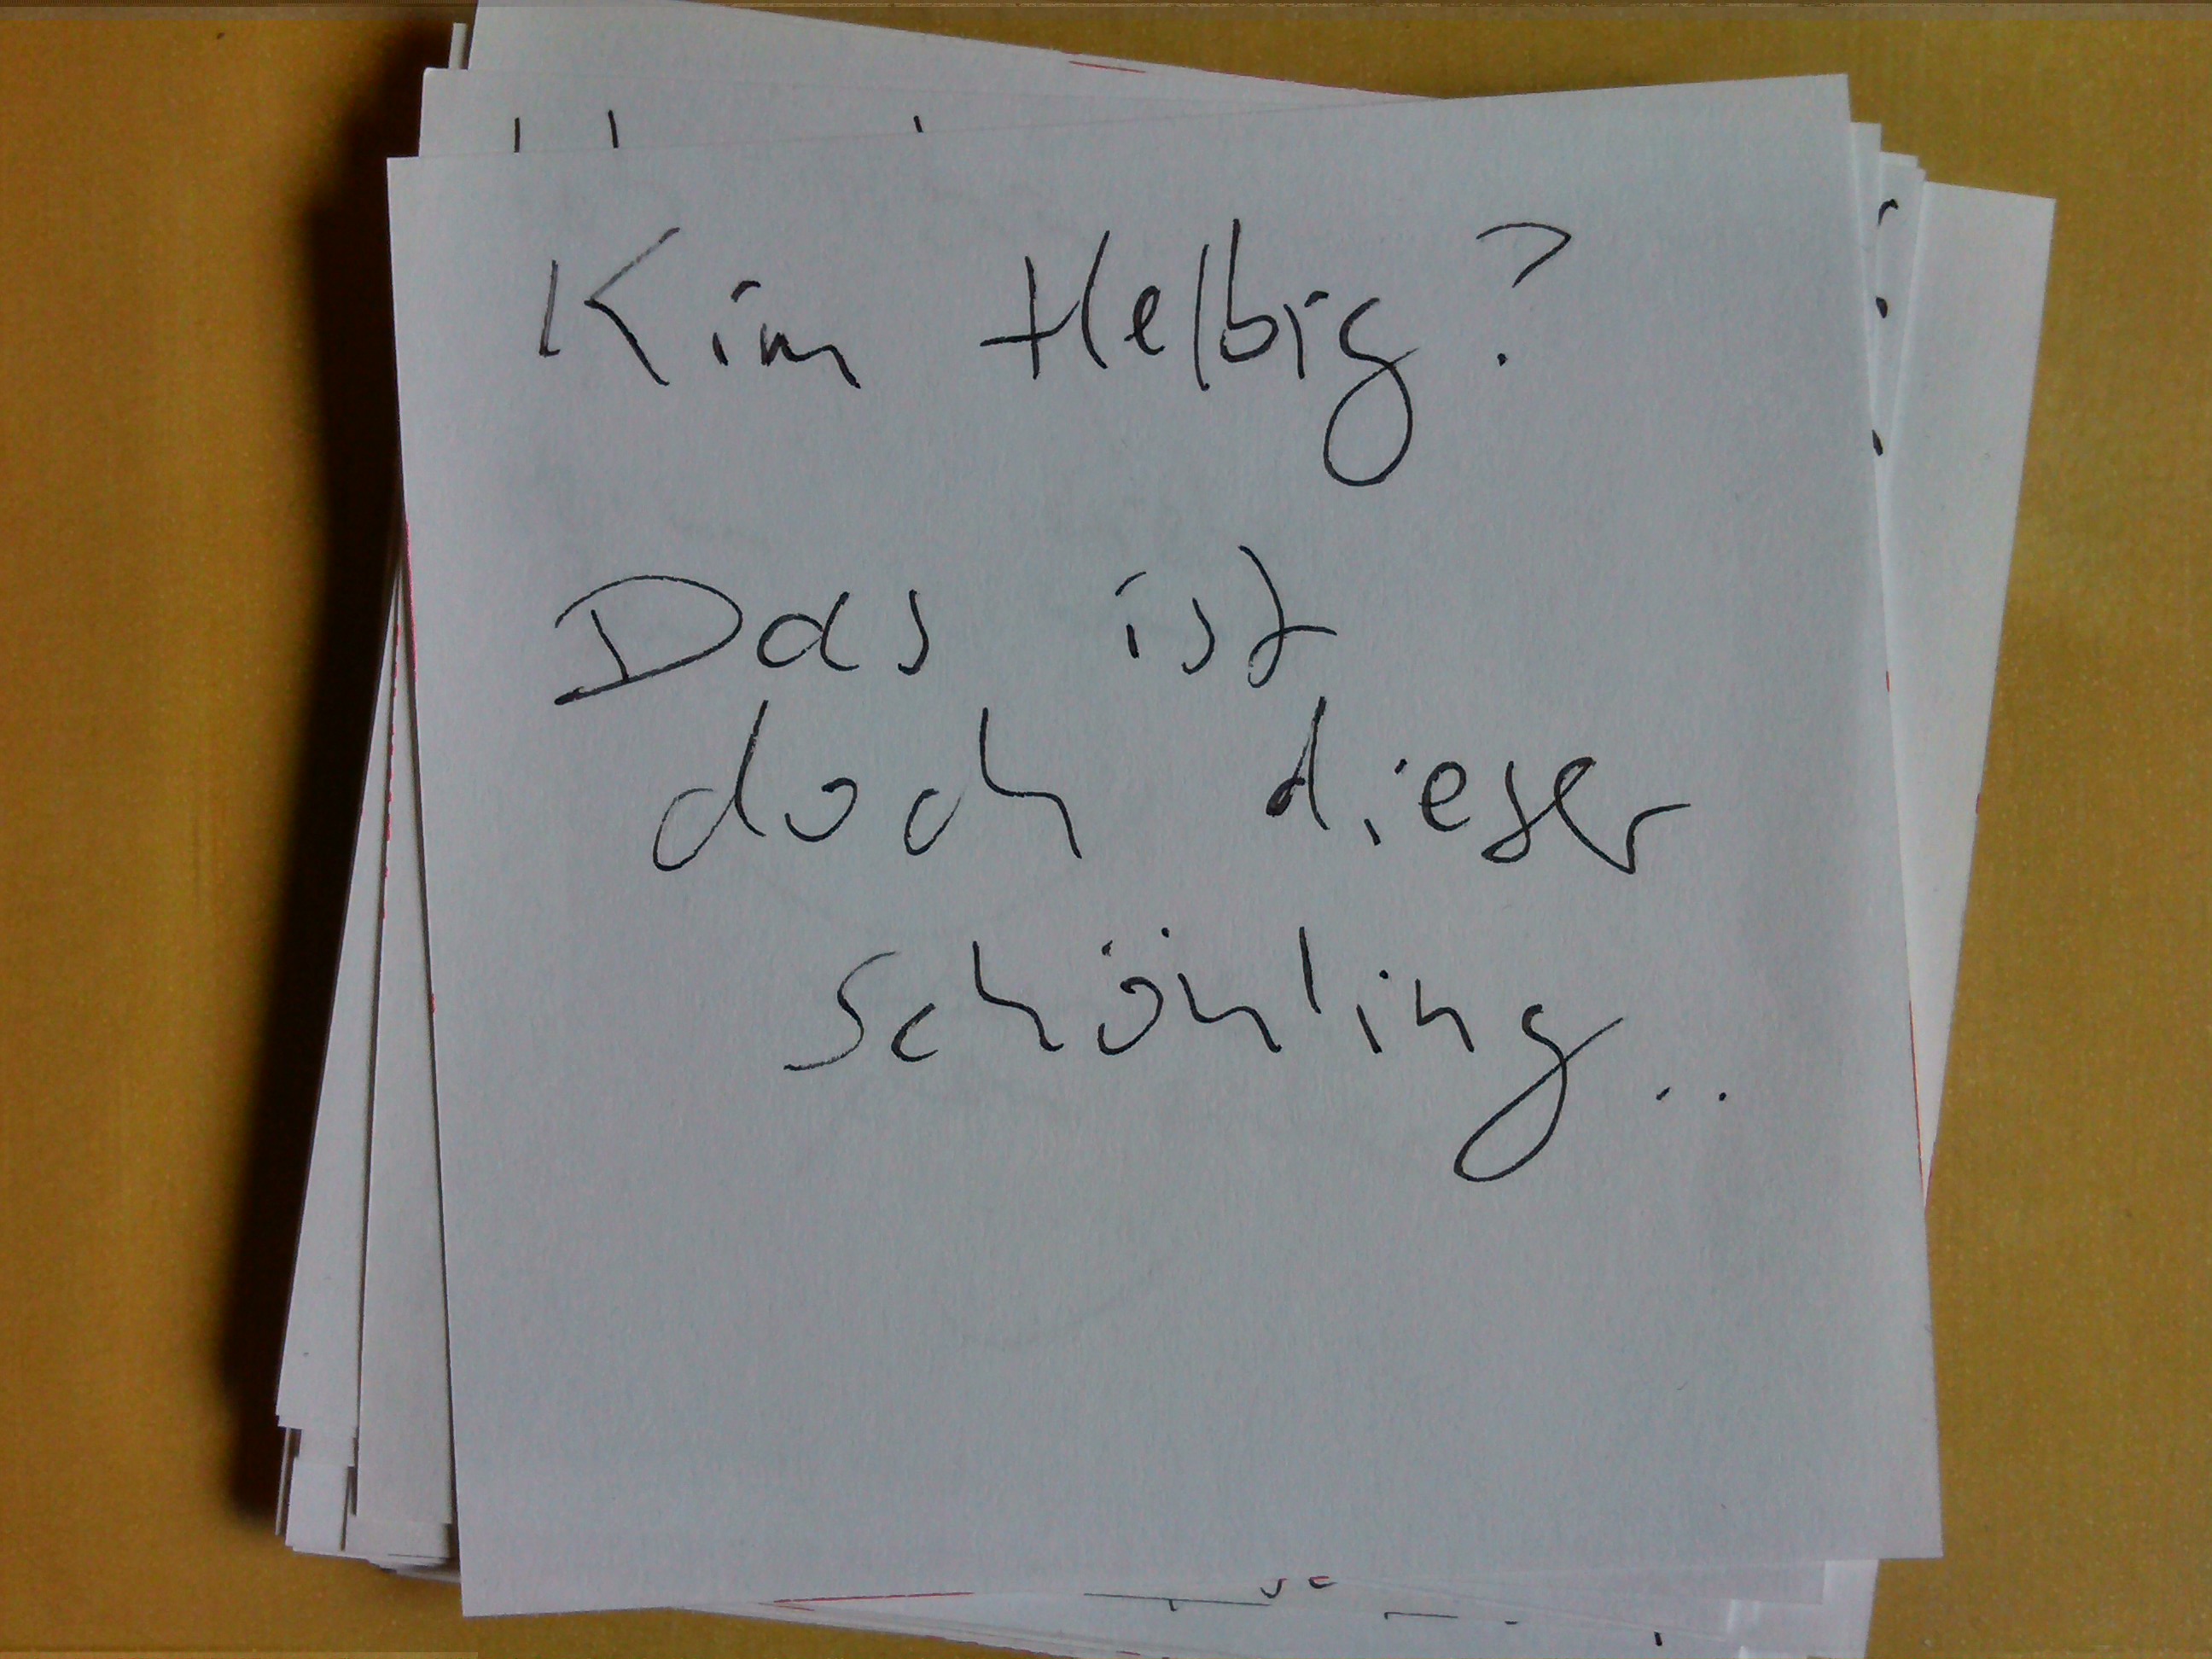 Kim Helbig?
Das ist
doch dieser
Schönling..